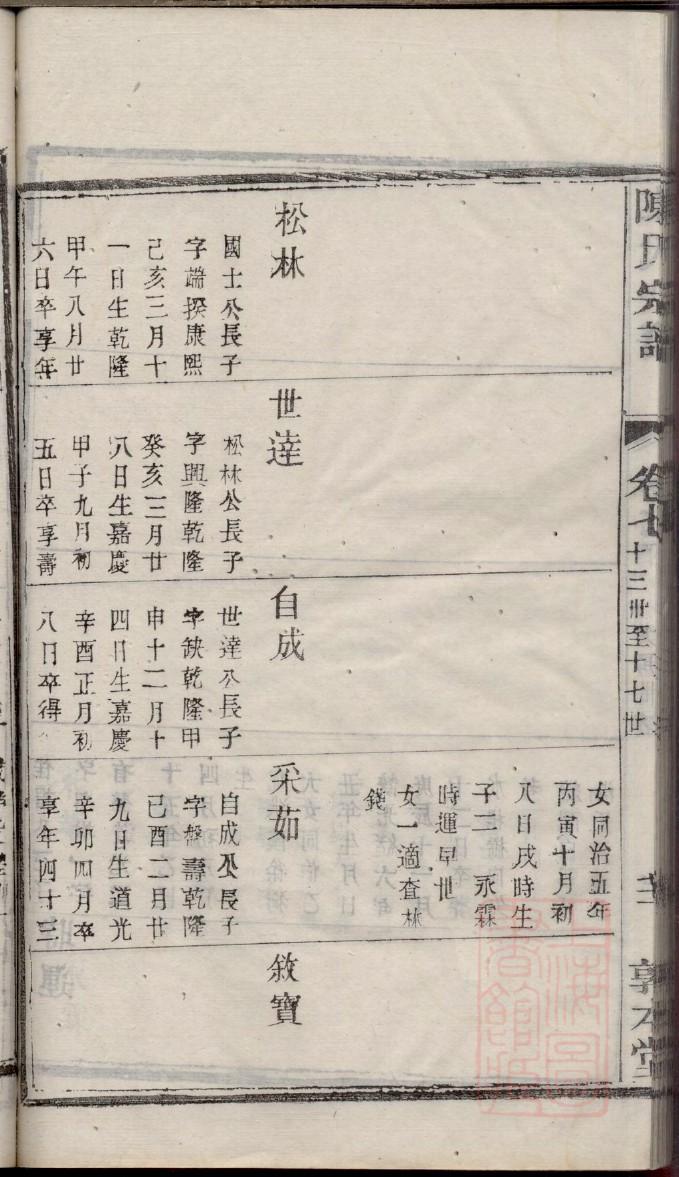 陳氏宗譜
卷七
十三世至十七世
敦本堂
松林
國士公長子
字端揆康熙
己亥三月十
一日生乾隆
甲午八月廿
六日卒享年
世達
松林公長子
字興隆乾隆
癸亥三月廿
八日生嘉慶
甲子九月初
五日卒享壽
自成
世達公長子
字缺乾隆甲
申十二月十
四日生嘉慶
辛酉正月初
八日卒得
女同治五年
丙寅十月初
八日戌時生
子二 永霖
時運早世
女一適查林
錢
采茹
自成公長子
字盤壽乾隆
己酉二月廿
九日生道光
辛卯四月卒
享年四十三
敘寶